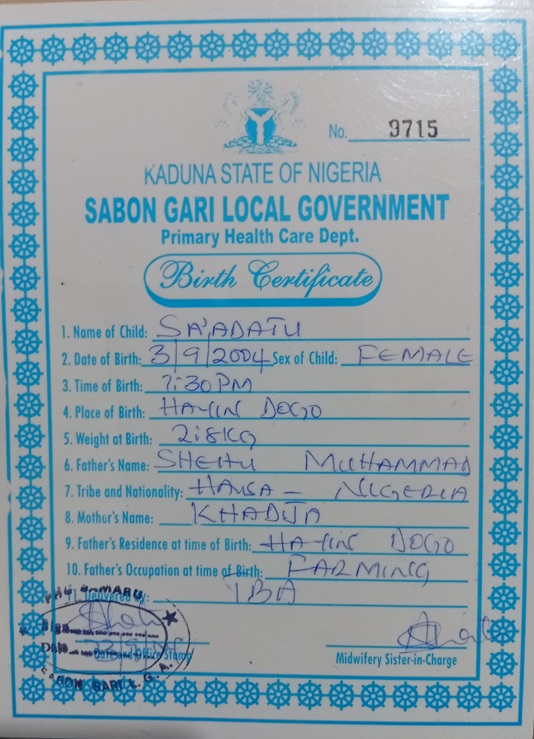 No. 9715
KADUNA STATE OF NIGERIA
SABON GARI LOCAL GOVERNMENT
Primary Health Care Dept.
Birth Certificate
1. Name of Child: SA'ADATU
2. Date of Birth: 3/9/2004 Sex of Child: FEMALE
3. Time of Birth: 7:30PM
4. Place of Birth: HAYIN DOGO
5. Weight at Birth: 2:8KG
6. Father's Name: SHEHU MUHAMMAD
7. Tribe and Nationality: HAUSA - NIGERIA
8. Mother's Name: KHADIJA
9. Father's Residence at time of Birth: HAYIN DOGO
10. Father's Occupation at time of Birth: FARMING
11. Delivered by: TBA
SAMARU
Sign
Date
Date and Office Stamp
SABON GARI L.G.A.
Midwifery Sister-in-Charge